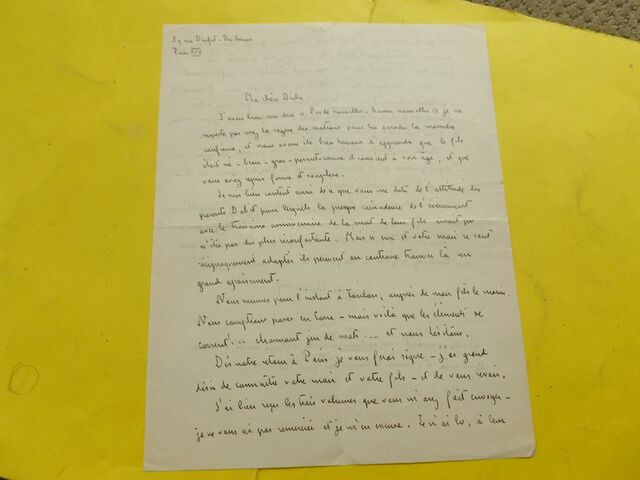 89 rue Denfert-Rochereau
Paris XIV
Ma chère Didi
J'avais beau me dire « Pas de nouvelles - bonnes nouvelles » je ne
respecte pas assez la sagesse des nations pour lui accorder la moindre
confiance, et nous avons été bien heureux d'apprendre que le fils
était né - beau - gros - pesant comme il convient à son âge, et que
vous aviez repris forme et souplesse.
Je suis bien content aussi de ce que vous me dites de l'attitude des
parents Dabit pour lesquels la presque coïncidence de l'événement
avec le troisième anniversaire de la mort de leur fils aurait pu
n'être pas des plus réconfortante. Mais si eux et votre mari se sont
réciproquement adoptés ils peuvent au contraire trouver là un
grand apaisement.
Nous sommes pour l'instant à Toulon, auprès de mon fils le marin.
Nous comptions passer en Corse - mais voilà que les éléments se
corsent!.. charmant jeu de mots ... et nous hésitons.
Dès notre retour à Paris je vous ferai signe - j'ai grand
désir de connaître votre mari et votre fils - et de vous revoir.
J'ai bien reçu les trois volumes que vous m'avez fait envoyer -
je ne vous ai pas remerciée et je m'en excuse. Je n'ai lu, à leur